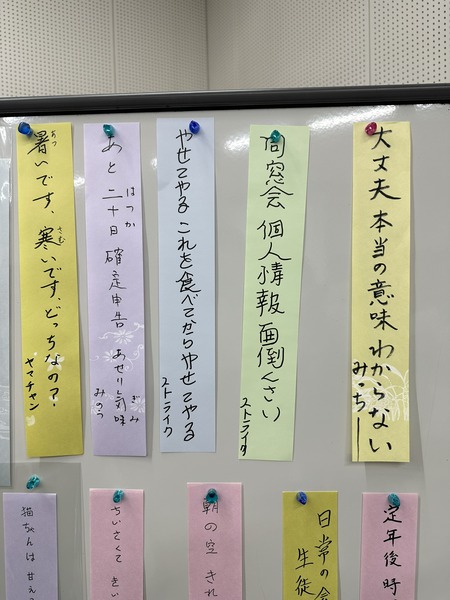 大丈夫 本当の意味 わからない
みっちー
同窓会 個人情報 面倒くさい
ストライク
やせてやる これを食べてからやせてやる
ストライク
はつか
ぎみ
あと 二十日 確定申告 あせり気味
みのつ
あつ
さむ
暑いです、寒いです、どっちなの?
ヤマチャン
定年後 時
日常の会
生徒
朝の空 きれ
ちいさくて きい
猫ちゃんは 甘え